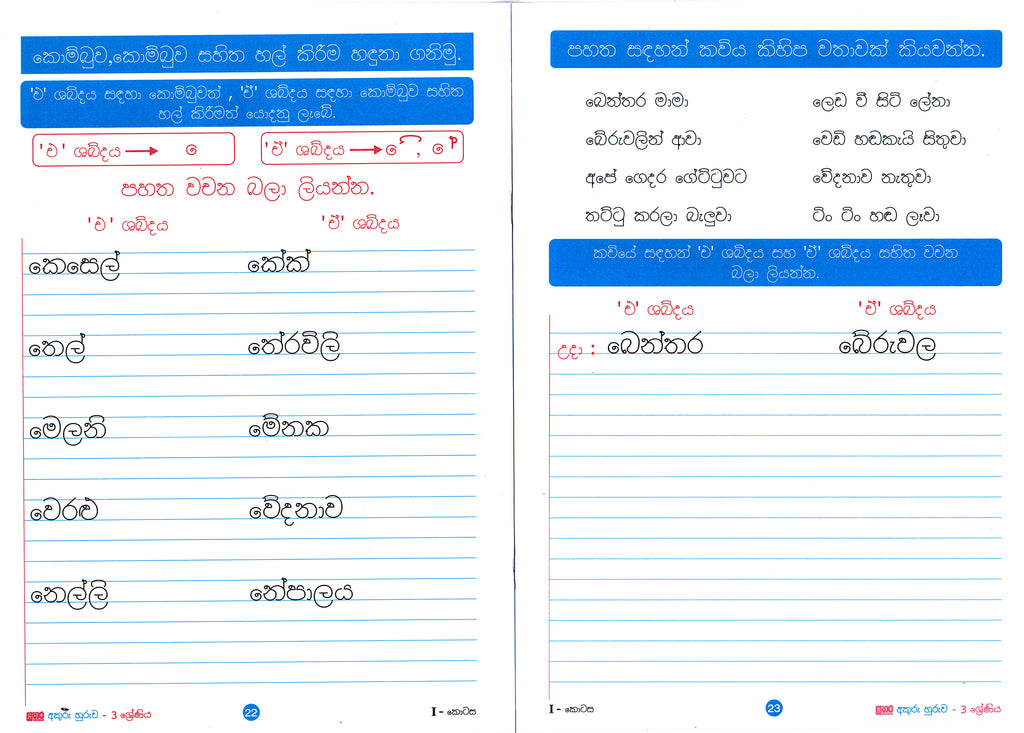 කොම්බුව,කොම්බුව සහිත හල් කිරීම හඳුනා ගනිමු.
'එ' ශබ්දය සඳහා කොම්බුවත් , 'ඒ' ශබ්දය සඳහා කොම්බුව සහිත
හල් කිරීමත් යොදනු ලැබේ.
'එ' ශබ්දය → ෙ
'ඒ' ශබ්දය → ේ , ේ
පහත වචන බලා ලියන්න.
'එ' ශබ්දය 'ඒ' ශබ්දය
කෙසෙල් කේක්
තෙල් තේරවිලි
මෙලනි මේනක
වෙරළු වේදනාව
නෙල්ලි නේපාලය
අකුරු හුරුව - 3 ශ්‍රේණිය 22 I - කොටස
පහත සඳහන් කවිය කිහිප වතාවක් කියවන්න.
බෙන්තර මාමා
බේරුවලින් ආවා
අපේ ගෙදර ගේට්ටුවට
තට්ටු කරලා බැලුවා
ලෙඩ වී සිටි ලේනා
වෙඩි හඬකැයි සිතුවා
වේදනාව නැතුවා
ටිං ටිං හඬ ලෑවා
කවියේ සඳහන් 'එ' ශබ්දය සහ 'ඒ' ශබ්දය සහිත වචන
බලා ලියන්න.
'එ' ශබ්දය 'ඒ' ශබ්දය
උදා : බෙන්තර බේරුවල
I - කොටස 23 අකුරු හුරුව - 3 ශ්‍රේණිය